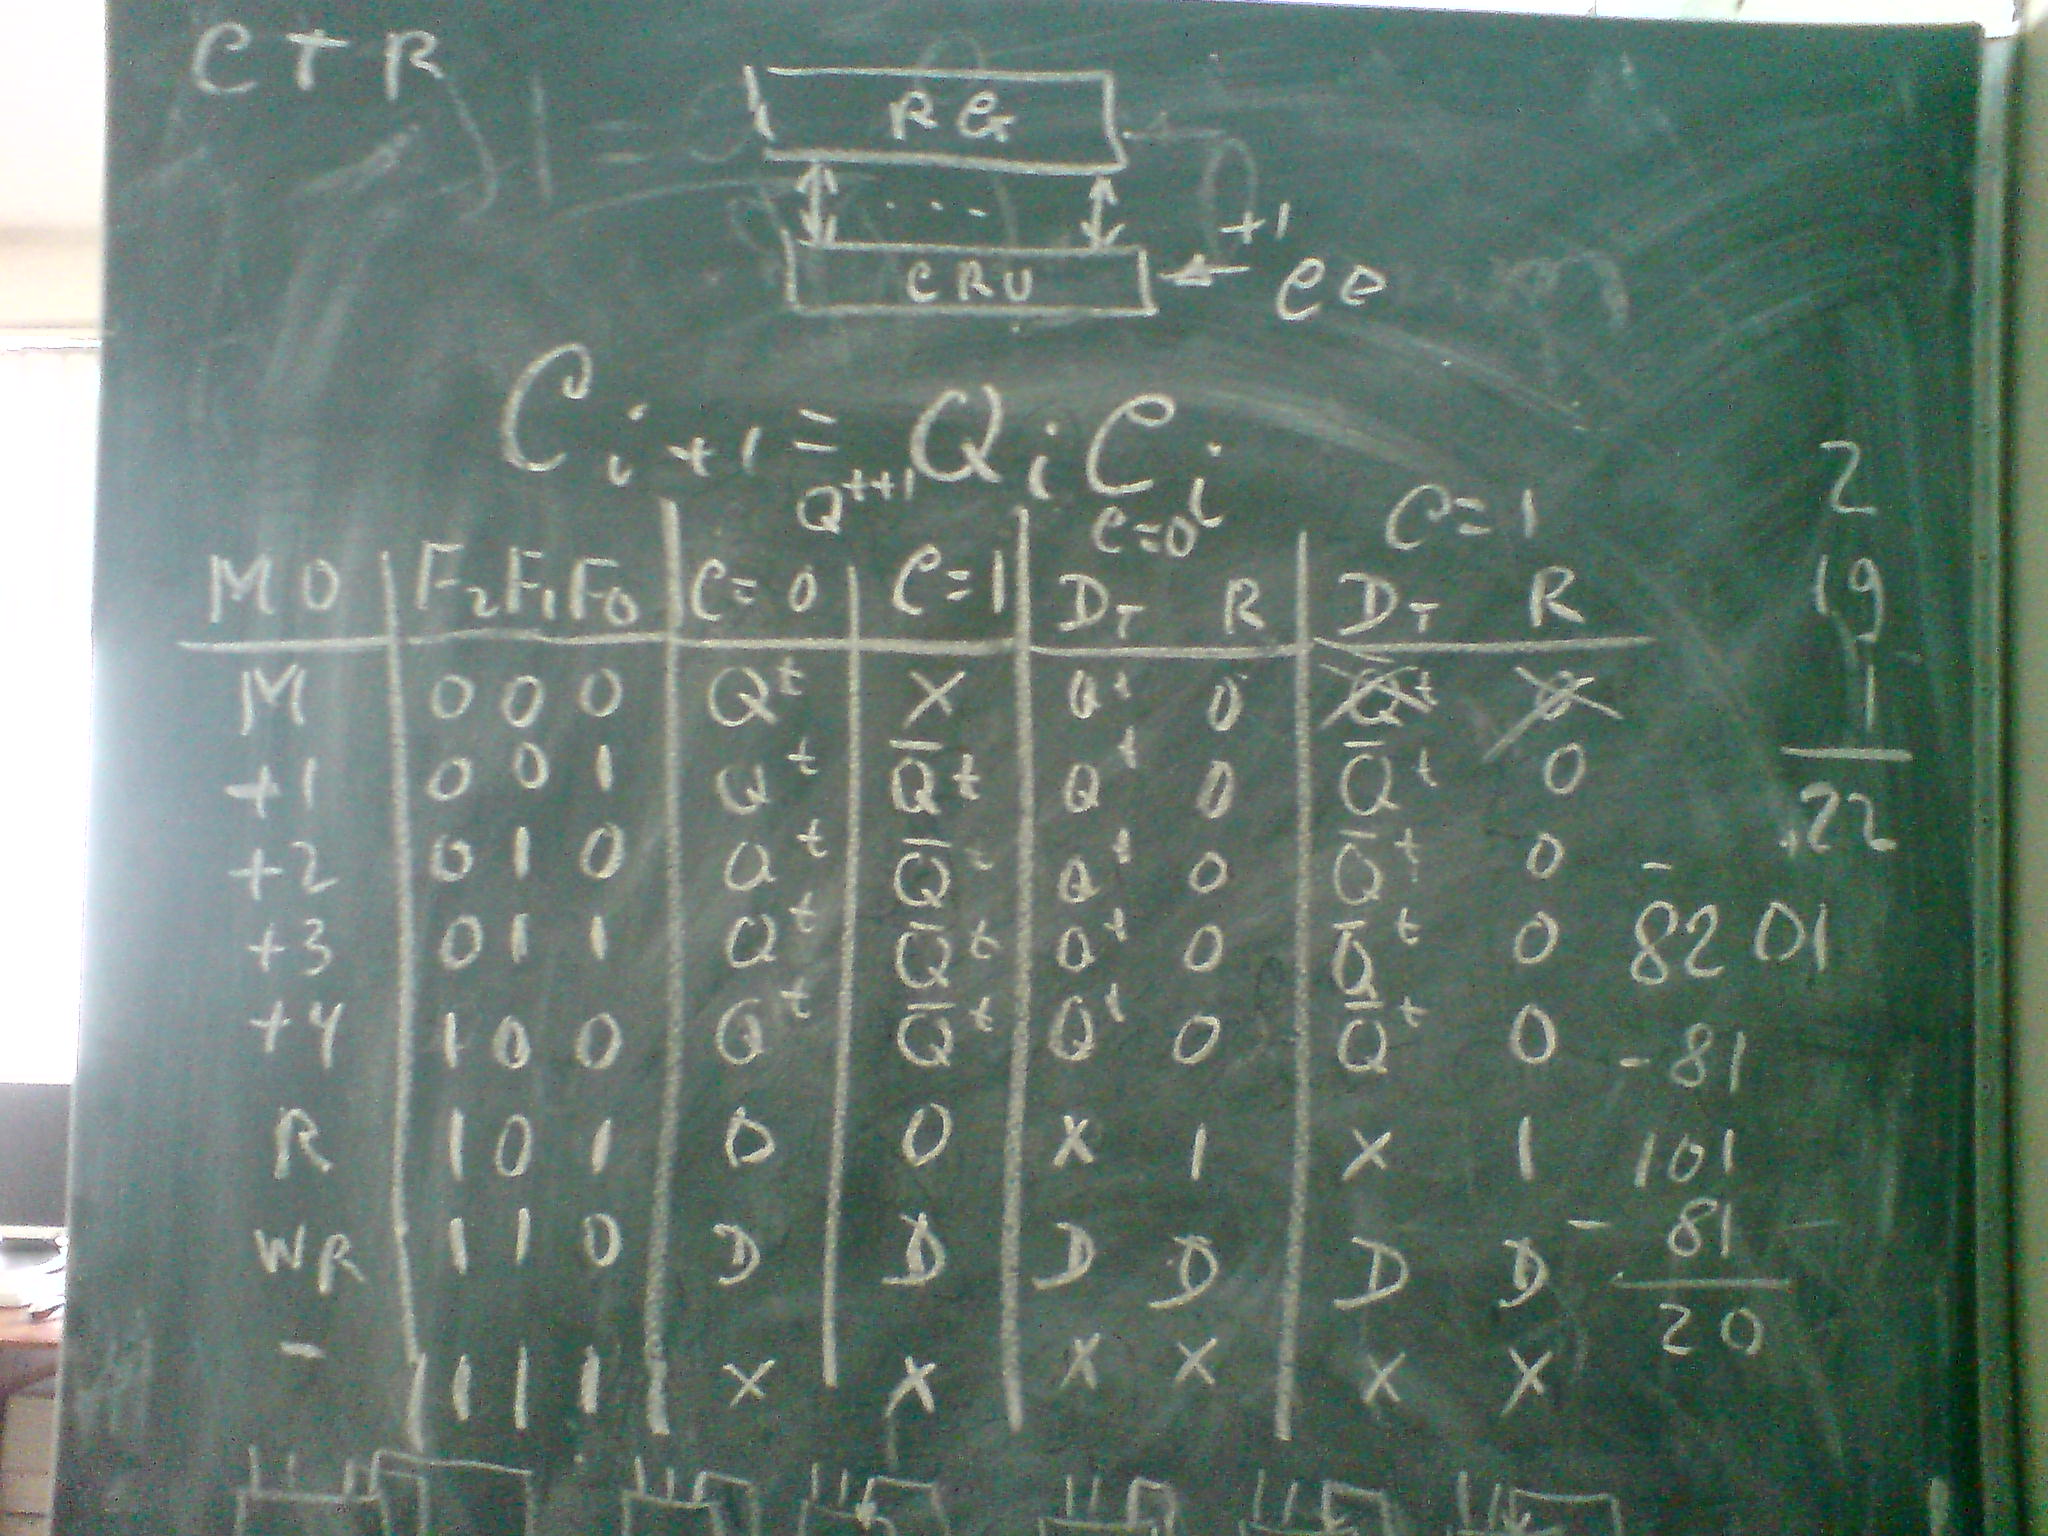 CTR
RG
...
+1
CRU
C0
C i+1 = Q i C i
Q^t+1 C=0 C=1
MO F₂F₁F₀ C=0 C=1 D_T R D_T R
M 0 0 0 Q^t X Q^t 0
+1 0 0 1 Q^t Q̅^t Q^t 0 Q̅^t 0
+2 0 1 0 Q^t Q̅^t Q^t 0 Q̅^t 0
+3 0 1 1 Q^t Q̅^t Q^t 0 Q̅^t 0
+4 1 0 0 Q^t Q̅^t Q^t 0 Q̅^t 0
R 1 0 1 0 0 X 1 X 1
WR 1 1 0 D D D D̅ D D̅
- 1 1 1 X X X X X X
2
19
1
22
82 01
-81
101
- 81
20